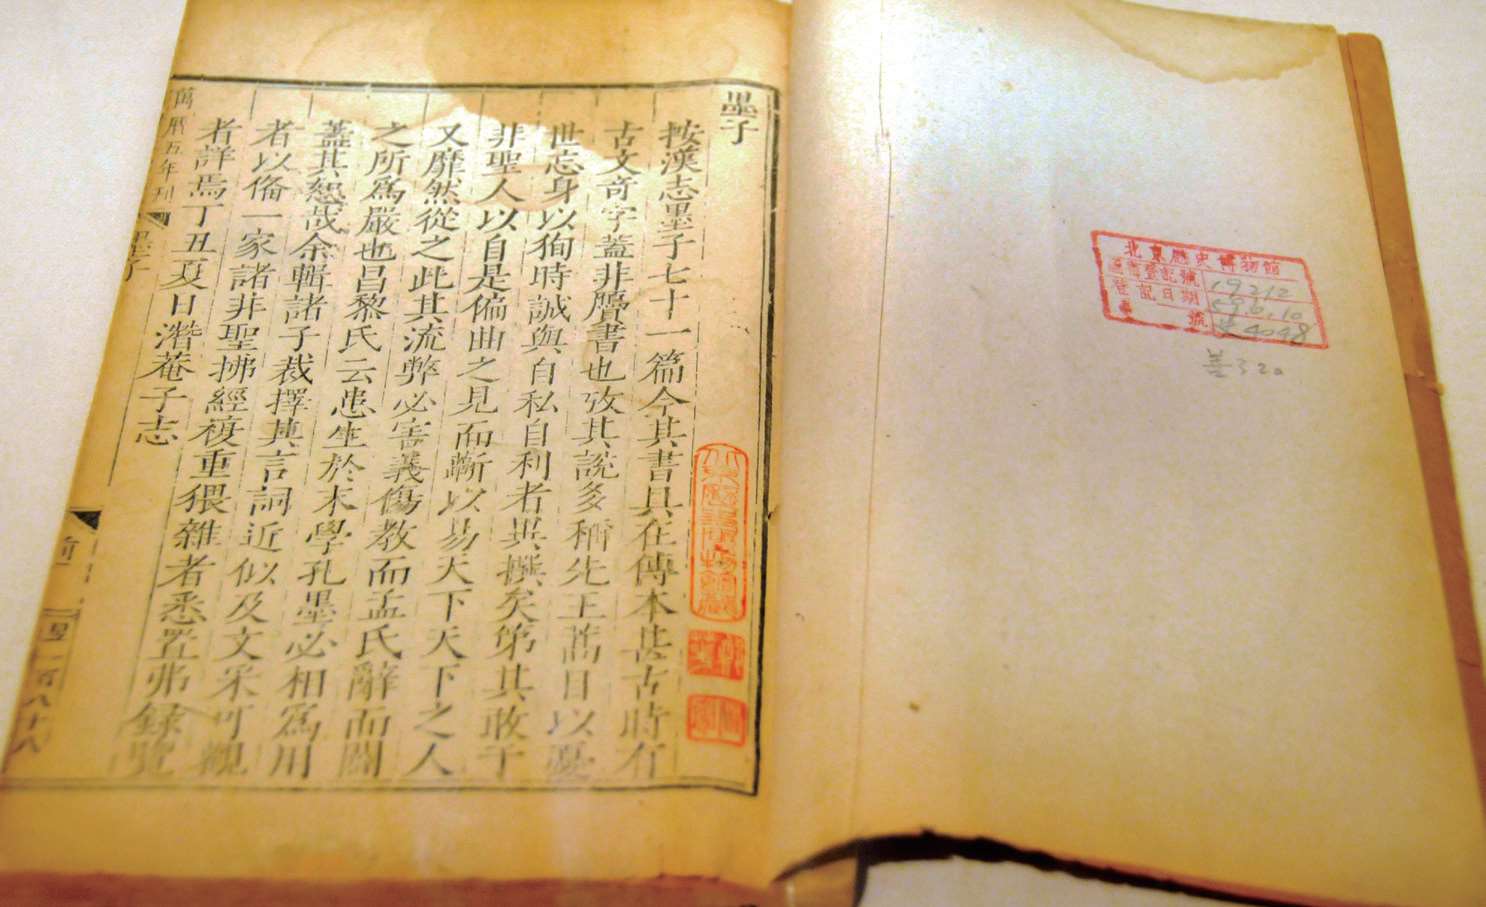 墨子
按漢志墨子七十一篇今其書具在傳本甚古時有
古文奇字蓋非贗書也攷其說多稱先王蒿目以憂
世忘身以狥時誠與自私自利者異撰矣第其敢于
非聖人以自是偏曲之見而蘄以易天下天下之人
又靡然從之此其流弊必害義傷教而孟氏辭而闢
之所爲嚴也昌黎氏云患生於末學孔墨必相爲用
蓋其恕哉余輯諸子裁擇其言詞近似及文采可觀
者以俻一家諸非聖拂經複重猥雜者悉置弗録覽
者詳焉丁丑夏日潛菴子志
萬厯五年刊
墨子
北京歷史博物館
登記號 19212
登記日期 59.6.10
號 4048
善320